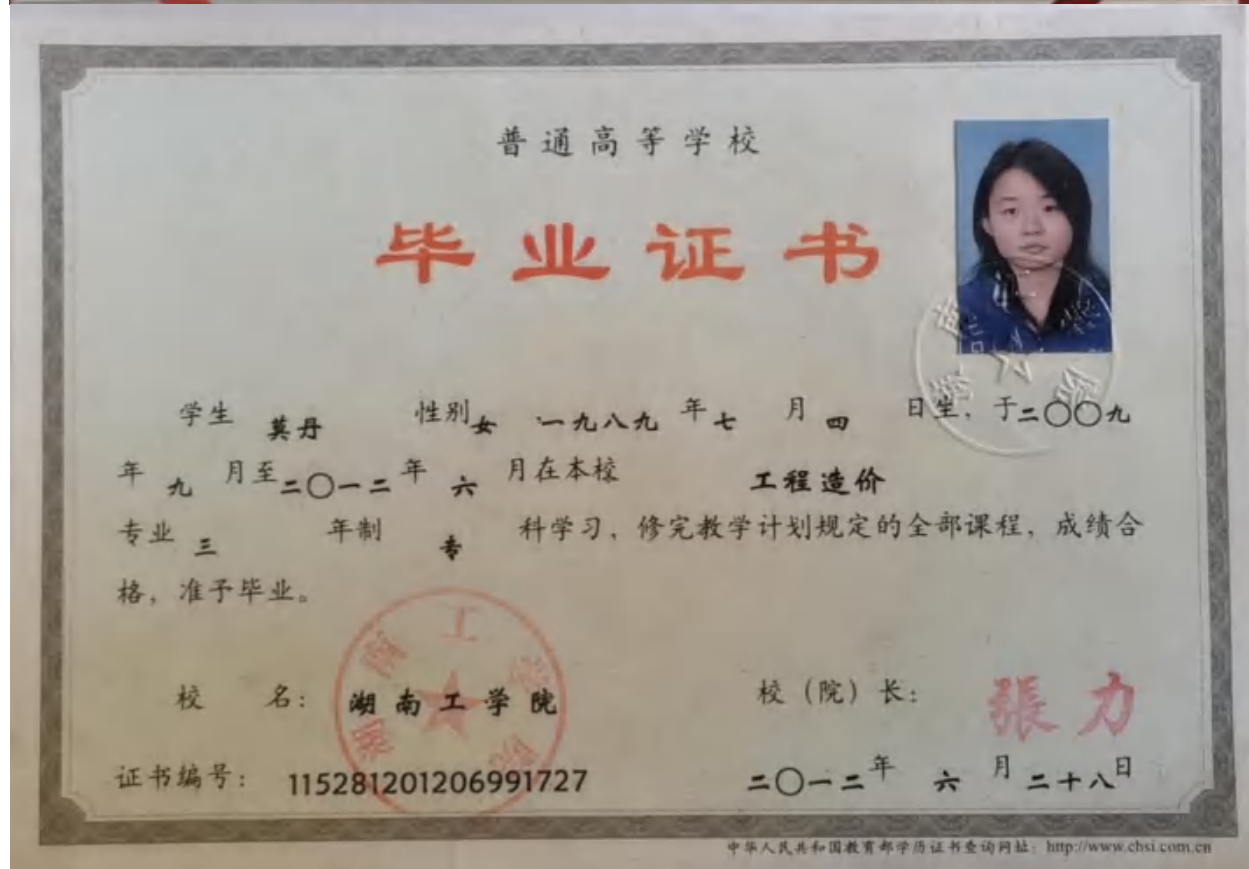 普通高等学校
毕业证书
学生 莫丹 性别 女 一九八九 年 七 月 四 日生, 于二〇〇九
年 九 月至二〇一二 年 六 月在本校 工程造价
专业 三 年制 专 科学习, 修完教学计划规定的全部课程, 成绩合
格, 准予毕业。
校 名: 湖南工学院 校(院)长: 張力
证书编号: 115281201206991727 二〇一二年 六 月 二十八日
中华人民共和国教育部学历证书查询网址: http://www.chsi.com.cn